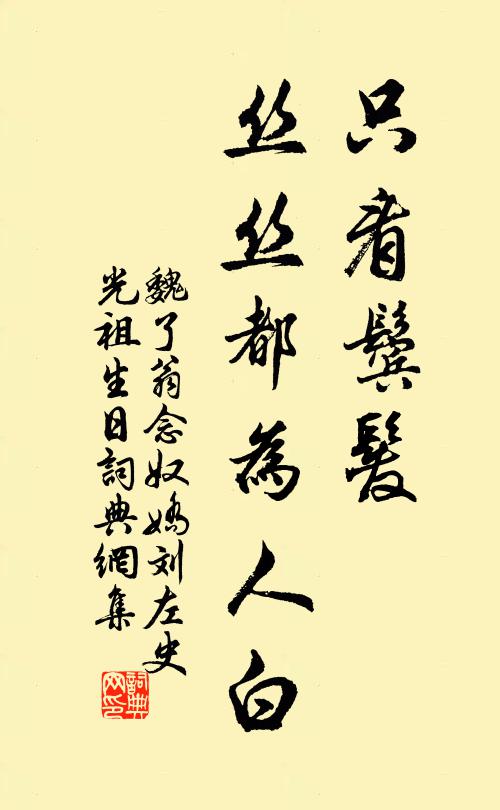 只看鬓髮
丝丝都為人白
魏了翁念奴嬌刘左史
光祖生日詞典網集
詞典
网印